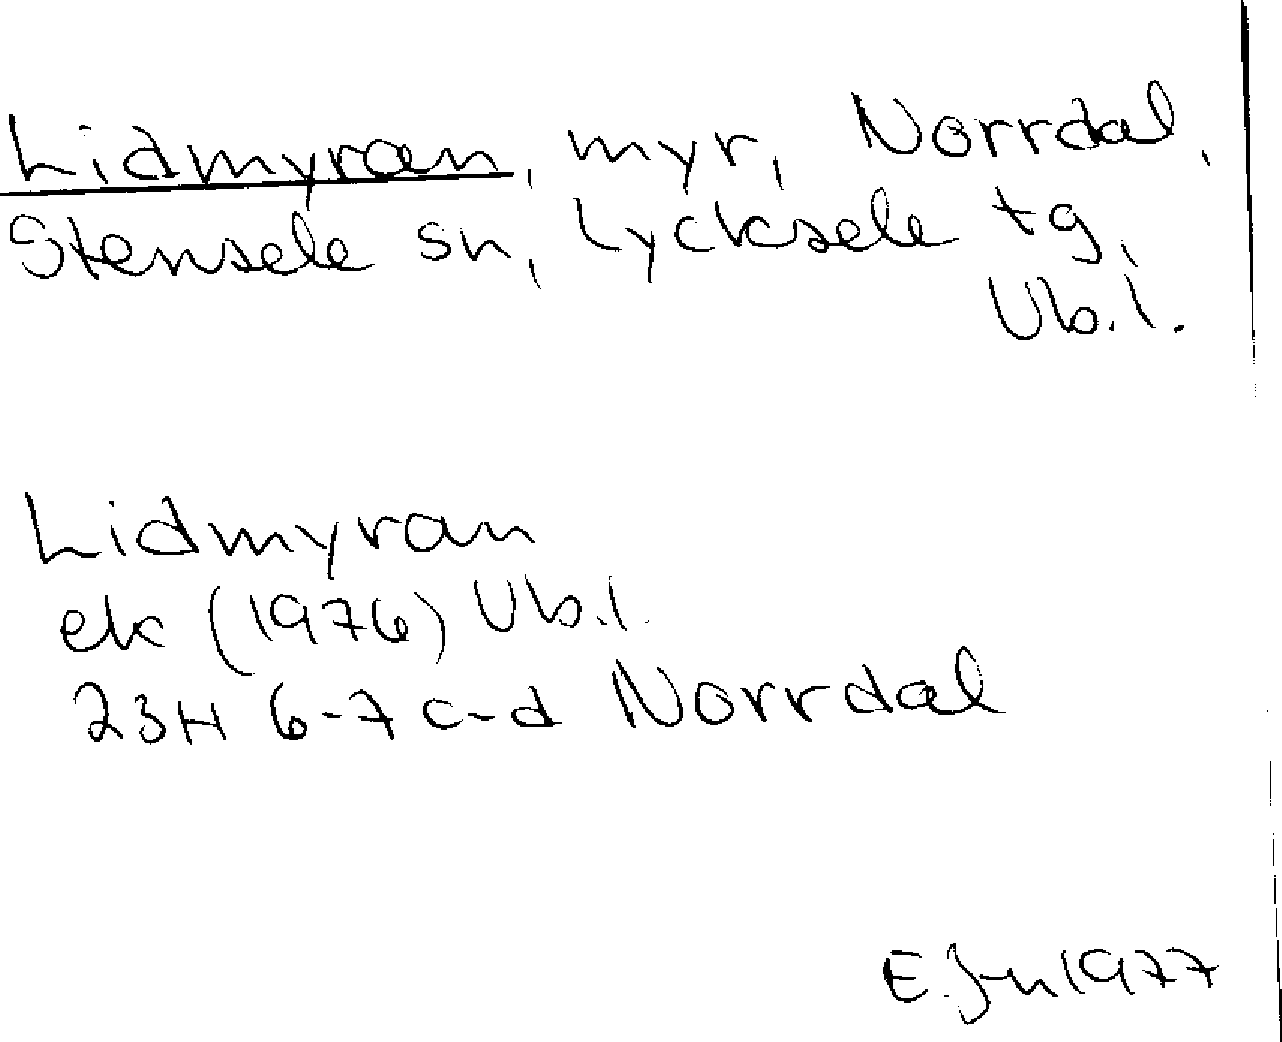 Lidmyran, myr, Norrdal,
Stensele sn, Lycksele tg,
Vb.l.
Lidmyran
ek (1976) Vb.l.
23H 6-7 c-d Norrdal
E. 1977